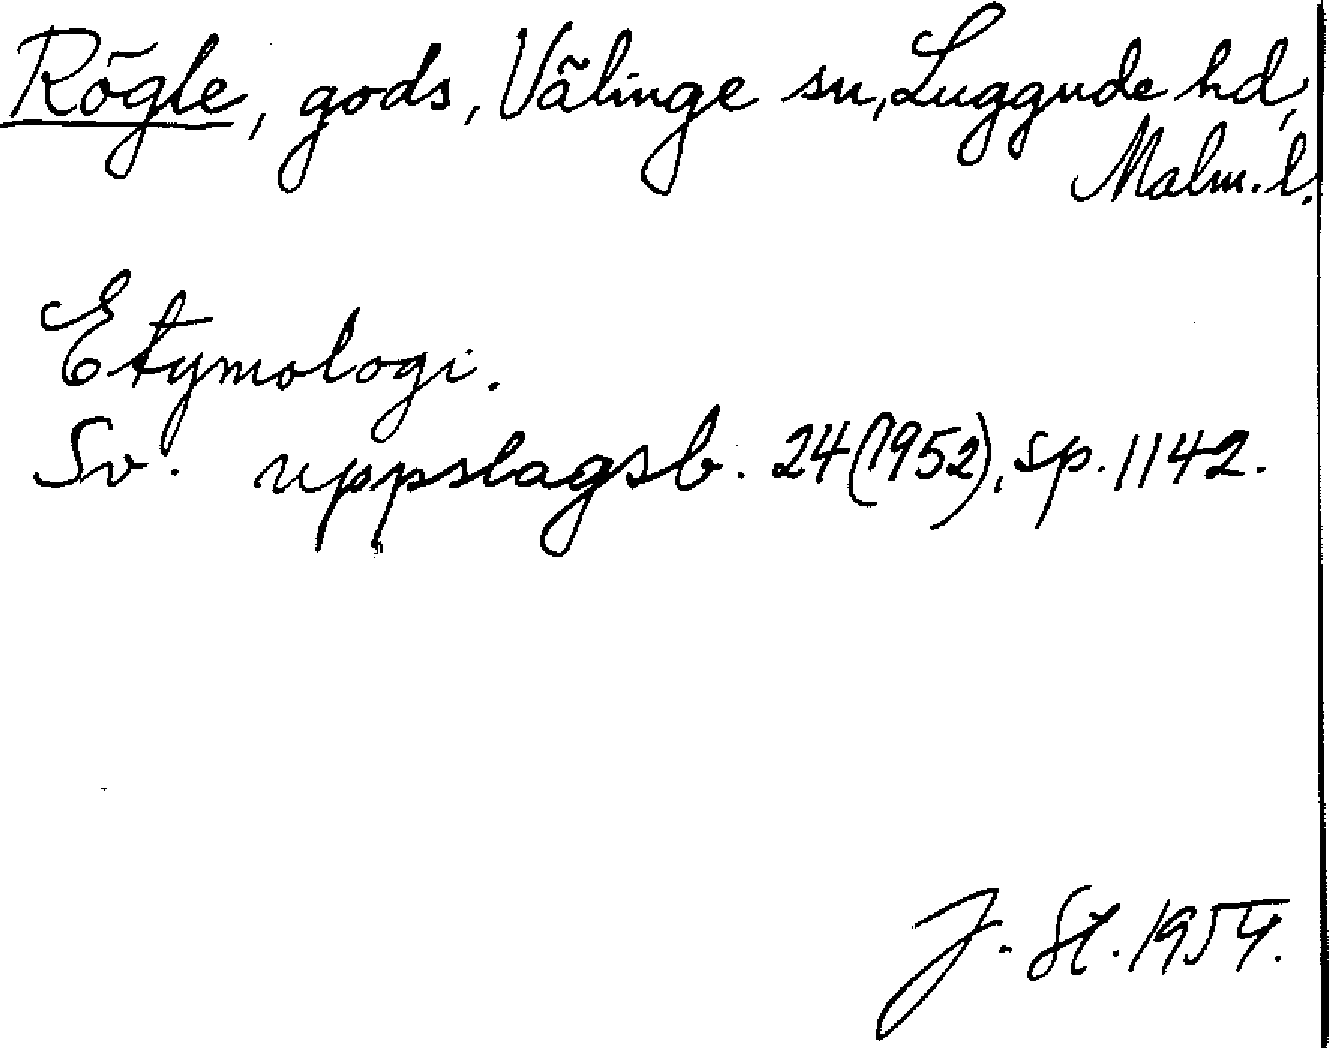 Rögle, gods, Välinge sn, Luggude hd,
Malm. l.
Etymologi.
Sv. uppslagsb. 24 (1952), sp. 1142.
J. St. 1954.